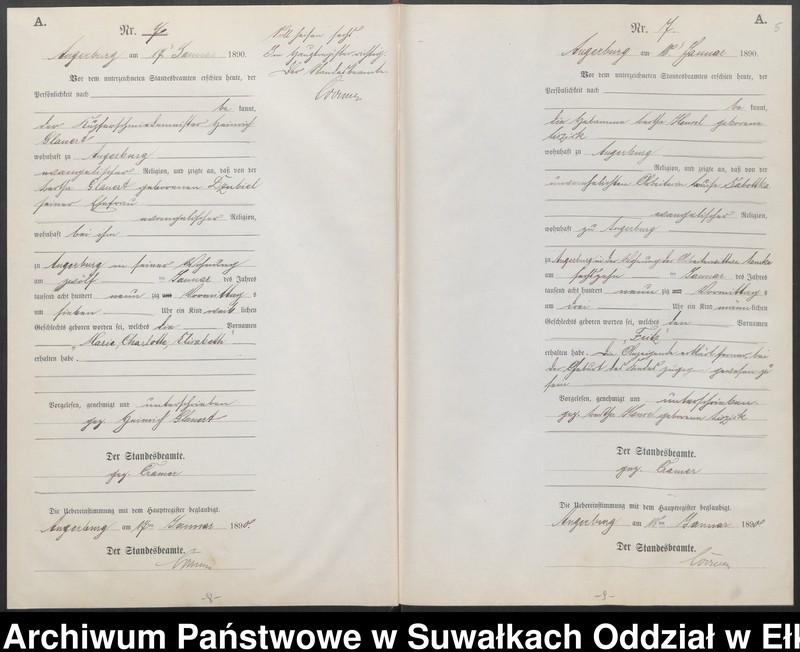 A.
Nr.
Angerburg am 17 Januar 1890.
Soll heißen sechs
Im Hauptregister richtig.
Der Standesbeamte
Cramer
Vor dem unterzeichneten Standesbeamten erschien heute, der
Persönlichkeit nach
be kannt,
der Kupferschmiedemeister Heinrich
Glauert
wohnhaft zu Angerburg
evangelischer Religion, und zeigte an, daß von der
Bertha Glauert geborenen
seiner Ehefrau
evangelischer Religion,
wohnhaft bei ihm
zu Angerburg in seiner Wohnung
am zwölf ten Januar des Jahres
tausend acht hundert neun zig Vormittag s
um sieben Uhr ein Kind weib lichen
Geschlechts geboren worden sei, welches die Vornamen
„Maria, Charlotte, Elisabeth“
erhalten habe.
Vorgelesen, genehmigt und unterschrieben
gez. Heinrich Glauert
Der Standesbeamte.
gez. Cramer
Die Uebereinstimmung mit dem Hauptregister beglaubigt.
Angerburg am 17ten Januar 1890.
Der Standesbeamte.
Cramer
-8-
A.
5
Nr. 7
Angerburg am 18 Januar 1890.
Vor dem unterzeichneten Standesbeamten erschien heute, der
Persönlichkeit nach
be kannt,
die Hebamme Bertha Hensel geborene
wohnhaft zu Angerburg
Religion, und zeigte an, daß von der
unverehelichten Arbeiterin Louise
evangelischer Religion,
wohnhaft zu Angerburg
zu Angerburg in der Wohnung der
am sechszehn ten Januar des Jahres
tausend acht hundert neun zig Vormittag s
um drei Uhr ein Kind männ lichen
Geschlechts geboren worden sei, welches den Vornamen
„Fritz“
erhalten habe. Die Anzeigende erklärt ferner, bei
der Geburt des Kindes zugegen gewesen zu
sein
Vorgelesen, genehmigt und unterschrieben
gez. Bertha Hensel geborene
Der Standesbeamte.
gez. Cramer
Die Uebereinstimmung mit dem Hauptregister beglaubigt.
Angerburg am 18ten Januar 1890.
Der Standesbeamte.
Cramer
-9-
Archiwum Państwowe w Suwałkach Oddział w Ełk